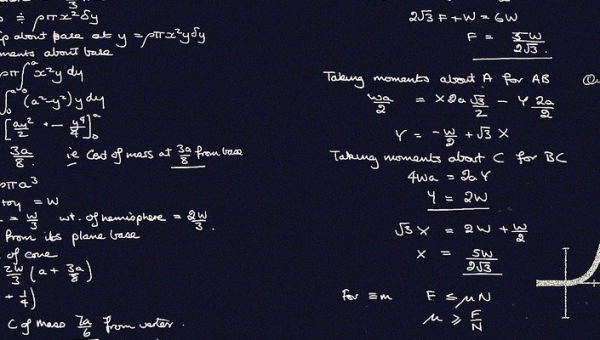 ≑ ρπx²δy
about base at y = ρπx²yδy
ments about base
ρπ∫₀ᵃ x²y dy
∫₀ᵃ (a²-y²)y dy
3a/8. ie C of mass at 3a/8 from base
πa³
= W
= W/3 wt. of hemisphere = 2W/3.
From its plane base
of cone
2W/3 (a + 3a/8)
+ 1/4)
C of mass 7a/6 from vertex.
2√3 F + W = 6W
F = 5W/2√3.
Taking moments about A for AB
Wa/2 = X2a√3/2 - Y 2a/2
Y = -W/2 + √3 X
Taking moments about C for BC
4Wa = 2aY
Y = 2W
√3 X = 2W + W/2
X = 5W/2√3
For ≡m F ≤ μN
μ ≥ F/N